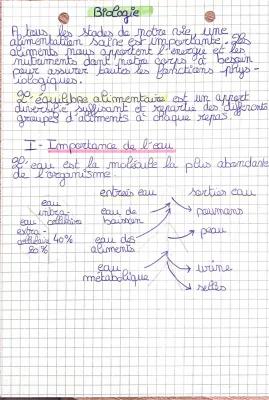 Biologie
A tous les stades de notre vie, une
alimentation saine est importante. Les
aliments nous apportent l'énergie et les
nutriments dont notre corps a besoin
pour assurer toutes les fonctions phys-
iologiques.
L'équilibre alimentaire est un apport
diversifié, suffisant et répartie des différents
groupes d'aliments à chaque repas.
I - Importance de l'eau
L'eau est la molécule la plus abondante
de l'organisme.
entrées eau sorties eau
eau
intra-
cellulaire
eau de
boisson
poumons
eau
extra-
cellulaire 40%
20%
eau des
aliments
peau
eau
métabolique
urine
selles